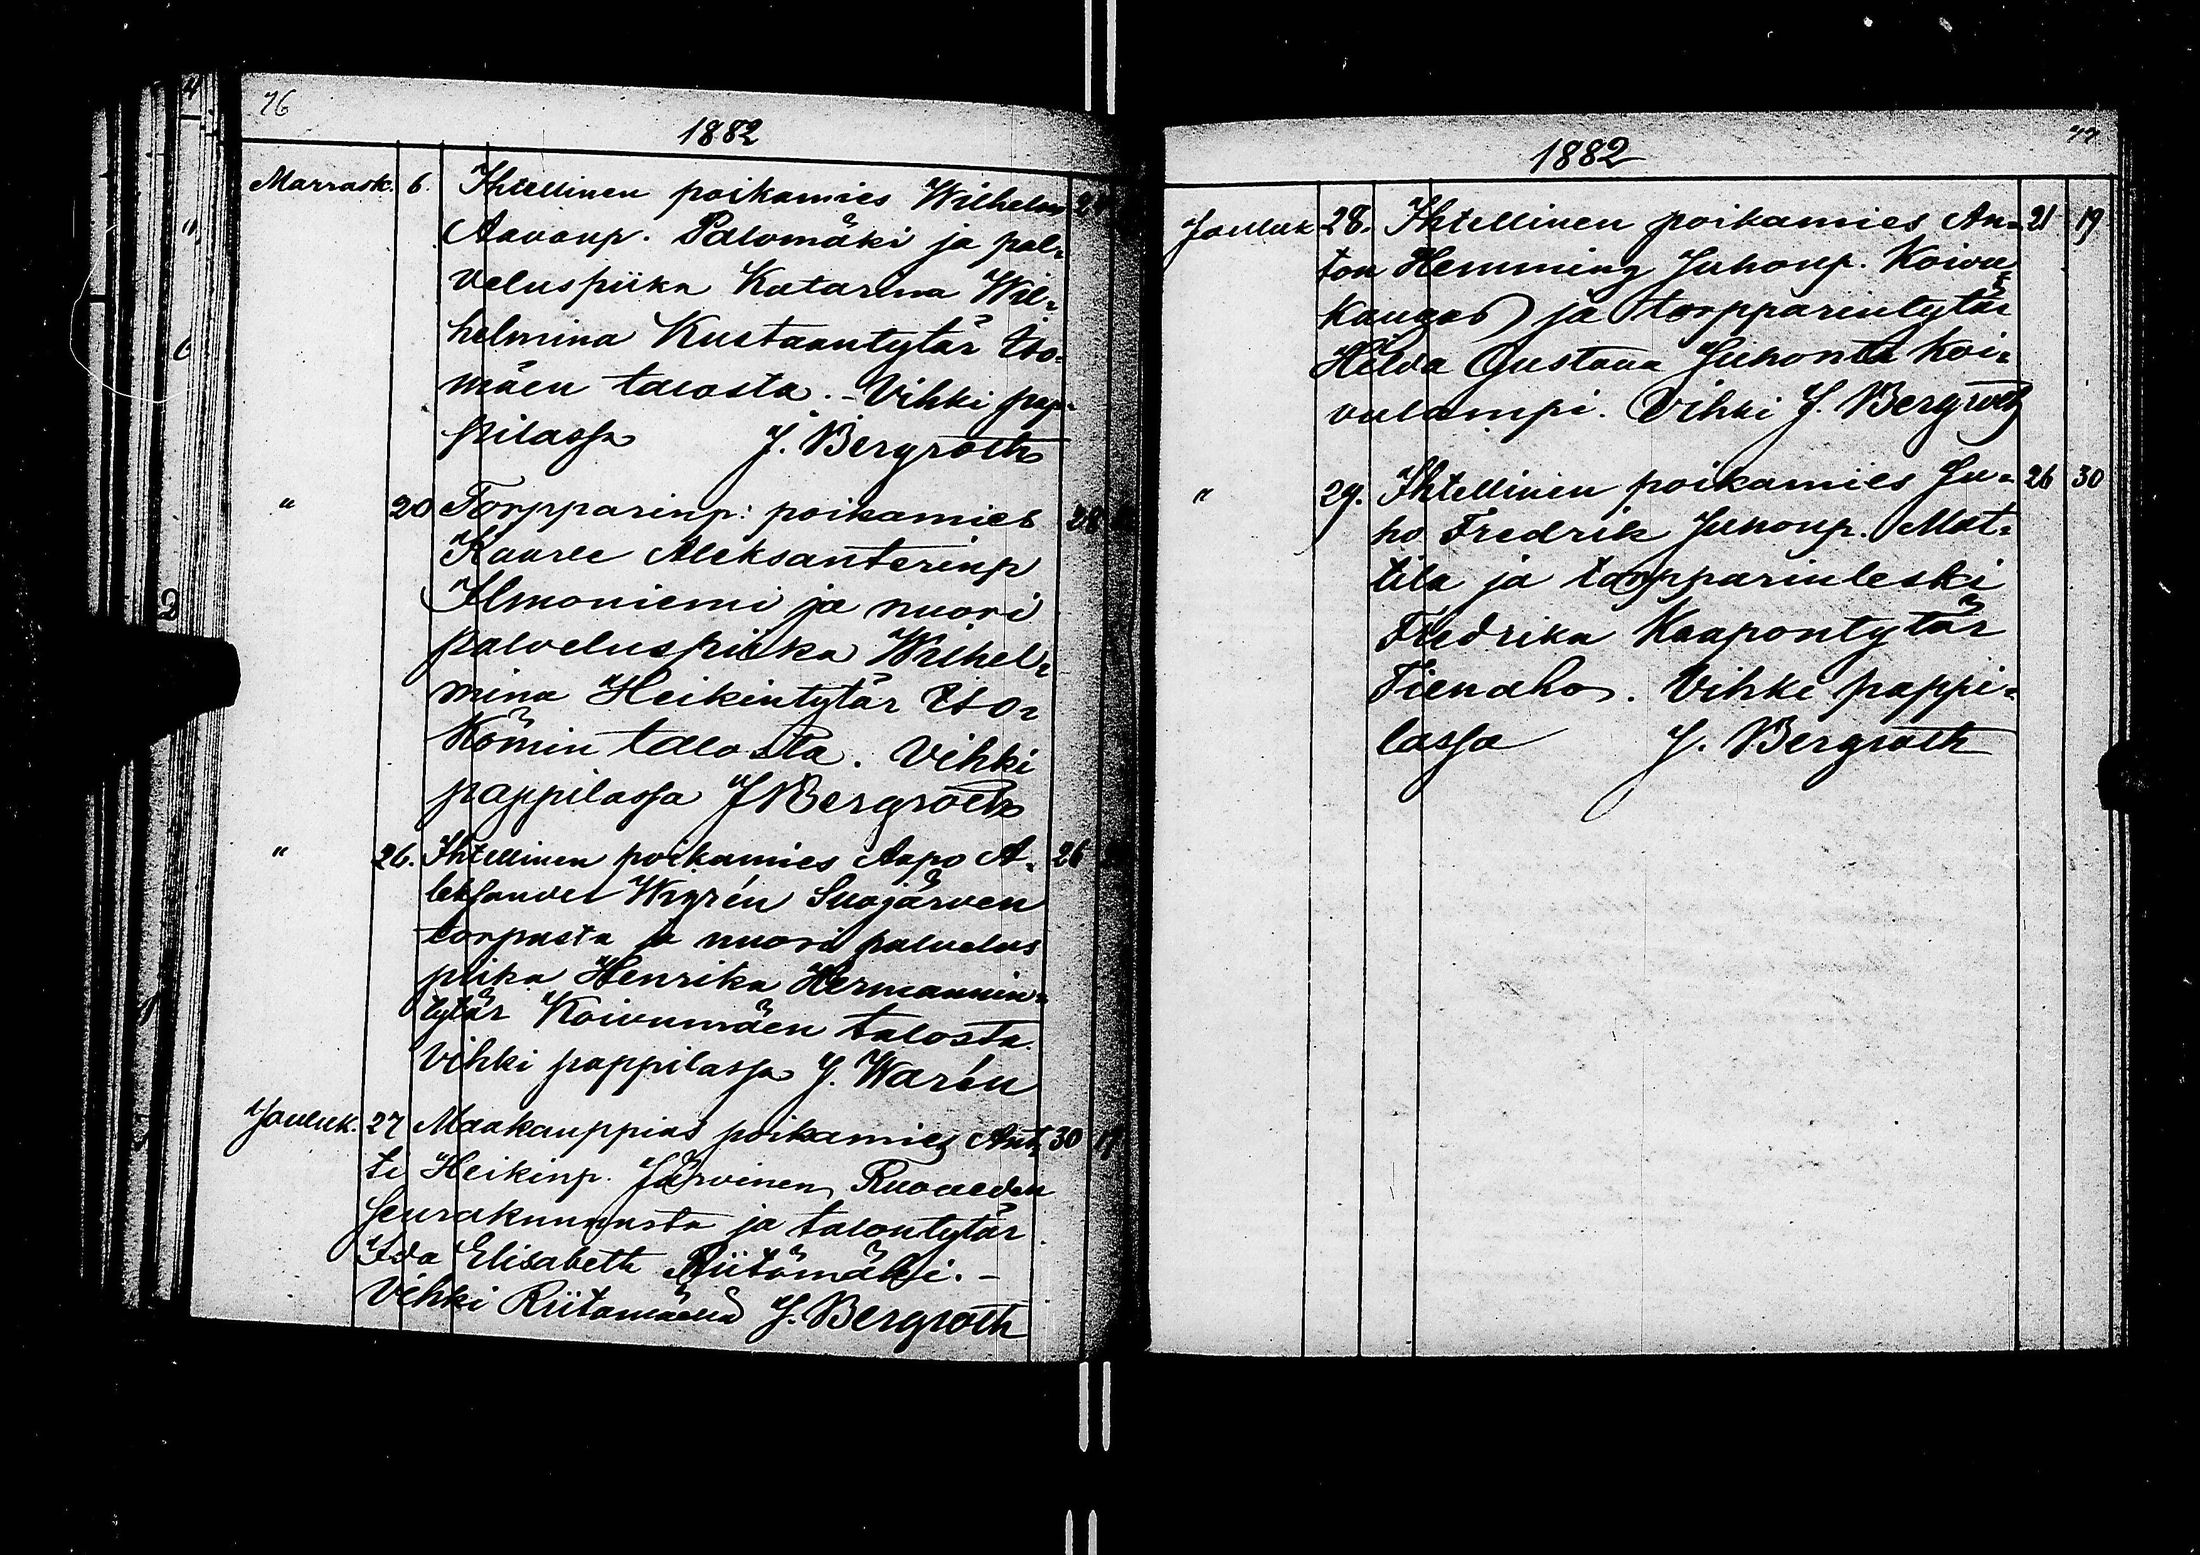 76
1882
Marrask. 6. Ihtellinen poikamies Wilhelm
Aavonp. Palomäki ja pal-
veluspiika Katarina Wil-
helmina Kustaantytär Iso-
mäen talosta. - Vihki pap-
pilassa J. Bergroth
" 20 Torpparinp: poikamies 28
Kaarle Aleksanterinp
Ilmoniemi ja nuori
palveluspiika Wilhel-
mina Heikintytär Iso-
Kömin talosta. Vihki
pappilassa J Bergroth
" 26. Ihtellinen poikamies Aapo A- 26
leksander Wigrén Suojärven
torpasta ja nuori palvelus
piika Henrika Hermannin-
tytär Koivumäen talosta.
Vihki pappilassa J. Warén
Jouluk. 27 Maakauppias poikamies Ant- 30 19
ti Heikinp. Järvinen Ruoveden
seurakunnasta ja talontytär
Ida Elisabeth Riitämäki. -
Vihki Riitamäellä J. Bergroth
77
1882
Jouluk 28. Ihtellinen poikamies An- 21 19
ton Hemming Juhonp. Koivu-
kangas ja torpparintytär
Hilda Gustava Juhont. Koi-
vulampi. Vihki J. Bergroth
" 29. Ihtellinen poikamies Ju- 26 30
ho Fredrik Juhonp. Mat-
tila ja torpparinleski
Fredrika Kaapontytär
Tienaho. Vihki pappi-
lassa J. Bergroth